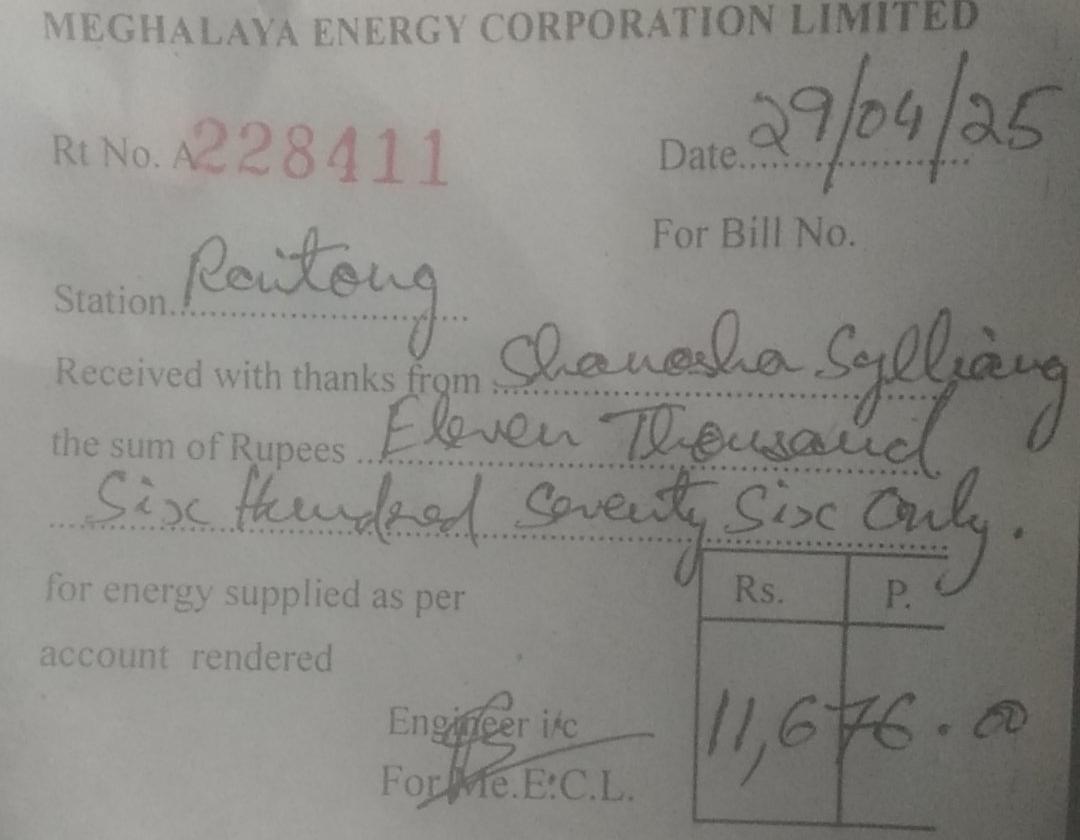 MEGHALAYA ENERGY CORPORATION LIMITED
Rt No. A228411 Date 29/04/25
For Bill No.
Station Raitong
Received with thanks from Shanosha Sylliang
the sum of Rupees Eleven Thousand
Six Hundred Seventy Six Only.
for energy supplied as per Rs. P.
account rendered
Engineer i/c 11,676.00
For Me.E.C.L.